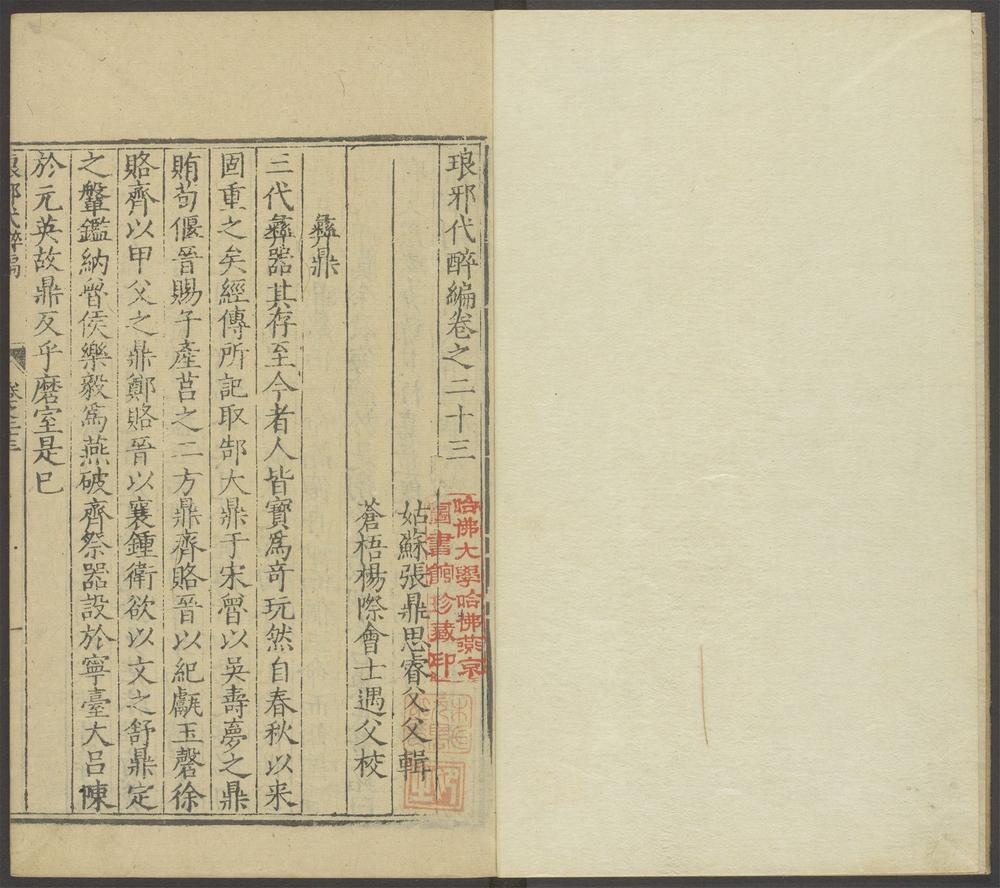 琅邪代醉編卷之二十三
姑蘇張鼎思睿父父輯
蒼梧楊際會士遇父校
彝鼎
三代彝器其存至今者人皆寶爲奇玩然自春秋以来
固重之矣經傳所記取郜大鼎于宋魯以吳壽夢之鼎
賄荀偃晉賜子產莒之二方鼎齊賂晉以紀甗玉磬徐
賂齊以甲父之鼎鄭賂晉以襄鍾衛欲以文之舒鼎定
之鞶鑑納魯侯樂毅爲燕破齊祭器設於寧臺大吕陳
於元英故鼎反乎磨室是已
琅邪代醉編
卷之二十三
一
哈佛大學哈佛燕京
圖書館珍藏印